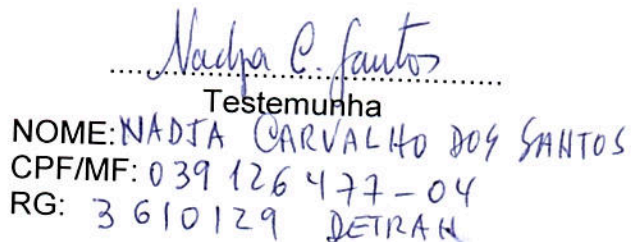 Nadja C. Santos
Testemunha
NOME: NADJA CARVALHO DOS SANTOS
CPF/MF: 039 126 477-04
RG: 3610129 DETRAN